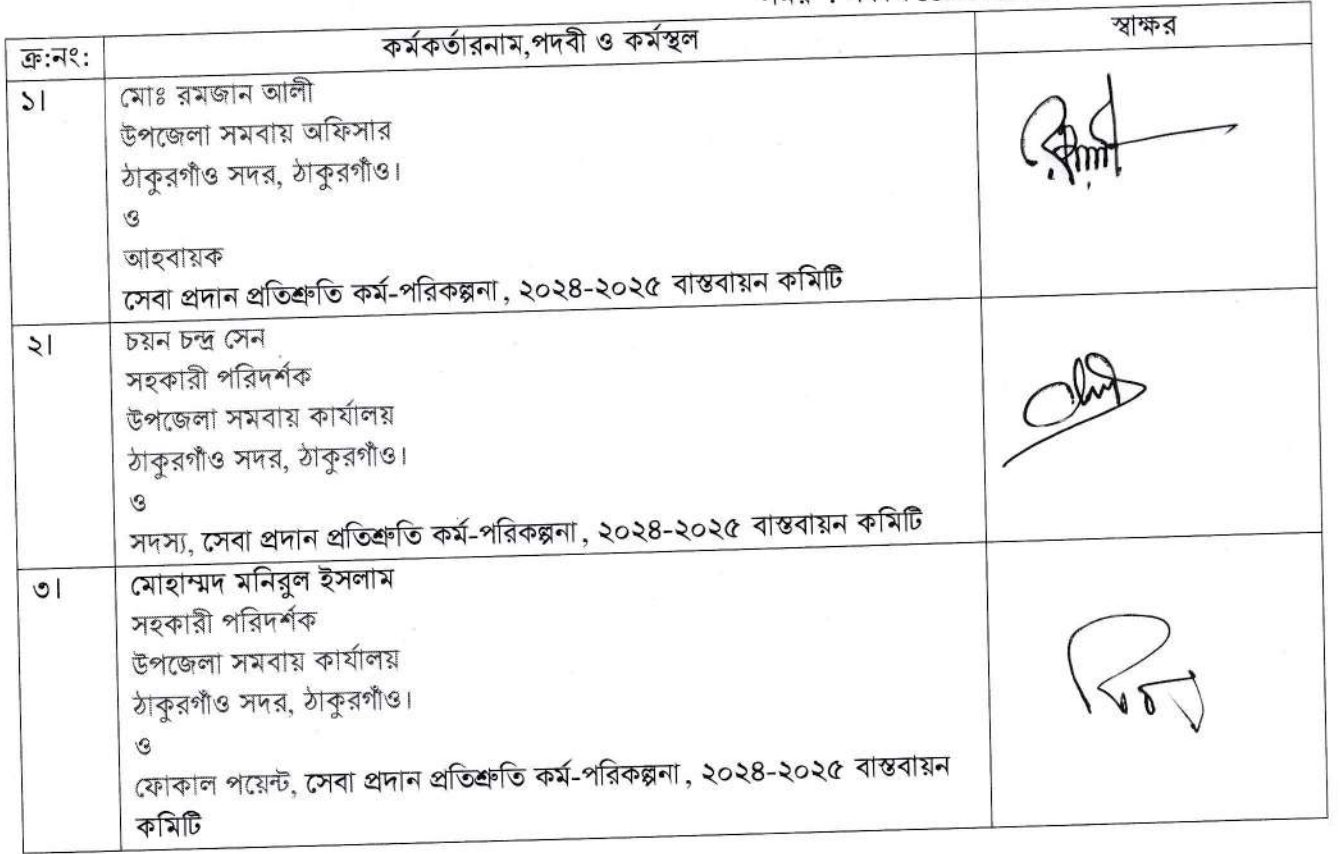 ক্র:নং: কর্মকর্তারনাম,পদবী ও কর্মস্থল স্বাক্ষর
১। মোঃ রমজান আলী
উপজেলা সমবায় অফিসার
ঠাকুরগাঁও সদর, ঠাকুরগাঁও।
ও
আহবায়ক
সেবা প্রদান প্রতিশ্রুতি কর্ম-পরিকল্পনা, ২০২৪-২০২৫ বাস্তবায়ন কমিটি
২। চয়ন চন্দ্র সেন
সহকারী পরিদর্শক
উপজেলা সমবায় কার্যালয়
ঠাকুরগাঁও সদর, ঠাকুরগাঁও।
ও
সদস্য, সেবা প্রদান প্রতিশ্রুতি কর্ম-পরিকল্পনা, ২০২৪-২০২৫ বাস্তবায়ন কমিটি
৩। মোহাম্মদ মনিরুল ইসলাম
সহকারী পরিদর্শক
উপজেলা সমবায় কার্যালয়
ঠাকুরগাঁও সদর, ঠাকুরগাঁও।
ও
ফোকাল পয়েন্ট, সেবা প্রদান প্রতিশ্রুতি কর্ম-পরিকল্পনা, ২০২৪-২০২৫ বাস্তবায়ন
কমিটি